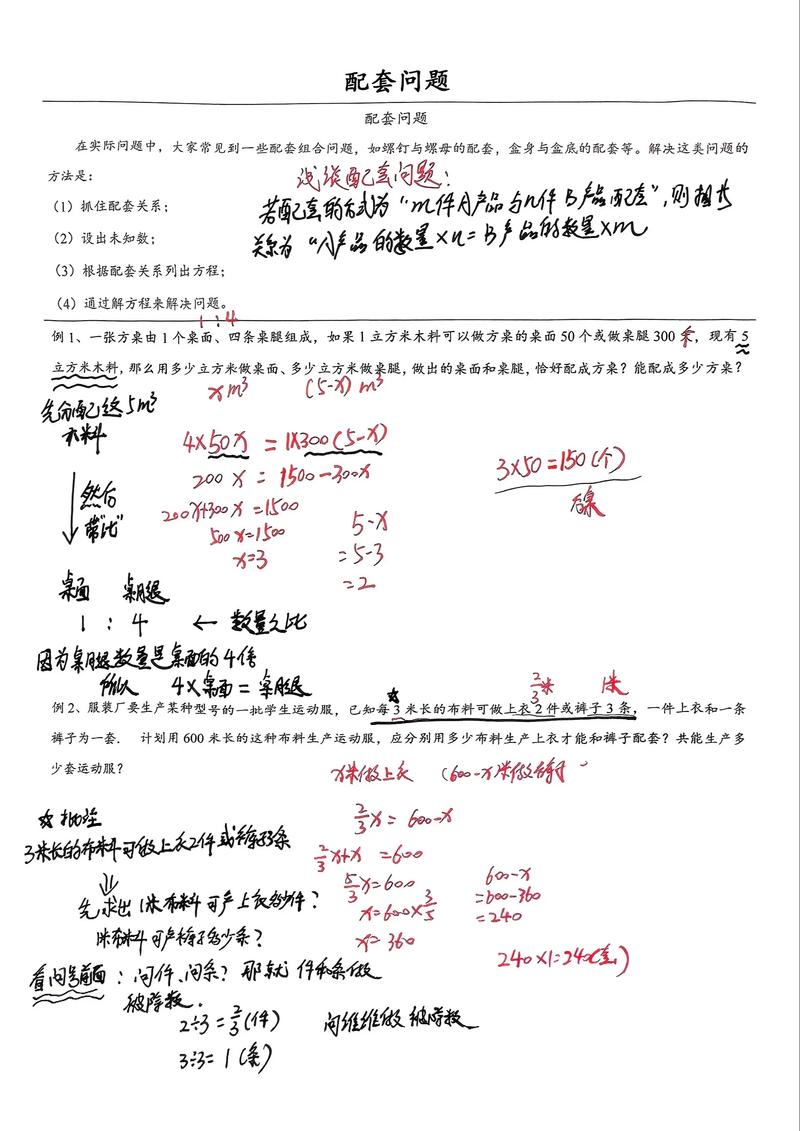 配套问题
配套问题
在实际问题中，大家常见到一些配套组合问题，如螺钉与螺母的配套，盒身与盒底的配套等。解决这类问题的
方法是：
浅谈配套问题：
（1）抓住配套关系；
若配套的方式为“m件A产品与n件B产品配套”，则相当
（2）设出未知数；
关系为“A产品的数量×n=B产品的数量×m
（3）根据配套关系列出方程；
（4）通过解方程来解决问题。
1:4
例 1、一张方桌由 1 个桌面、四条桌腿组成，如果 1 立方米木料可以做方桌的桌面 50 个或做桌腿 300 条，现有 5
立方米木料，那么用多少立方米做桌面、多少立方米做桌腿，做出的桌面和桌腿，恰好配成方桌？能配成多少方桌？
x m³ (5-x) m³
先分配这5m³
木料
4×50x = 1×300(5-x)
200x = 1500-300x
3×50=150(个)
方桌
然后
带“比”
200x+300x=1500
500x=1500
x=3
5-x
=5-3
=2
桌面 桌腿
1 : 4 ← 数量之比
因为桌腿数量是桌面的4倍
所以 4×桌面=桌腿
2/3米 1米
例 2、服装厂要生产某种型号的一批学生运动服，已知每 3 米长的布料可做上衣 2 件或裤子 3 条，一件上衣和一条
裤子为一套． 计划用 600 米长的这种布料生产运动服，应分别用多少布料生产上衣才能和裤子配套？共能生产多
少套运动服？
x米做上衣 (600-x)米做裤子
☆批注
3米长的布料可做上衣2件或裤子3条
2/3x = 600-x
2/3x+x =600
5/3x=600
x=600×3/5
x=360
600-x
=600-360
=240
240×1=240(套)
⇓
先求出1米布料可产上衣多少件？
1米布料可产裤子多少条？
看问号前面：问件、问条？那就件和条做
被除数．
2÷3=2/3(件) 问谁谁做被除数
3÷3=1(条)